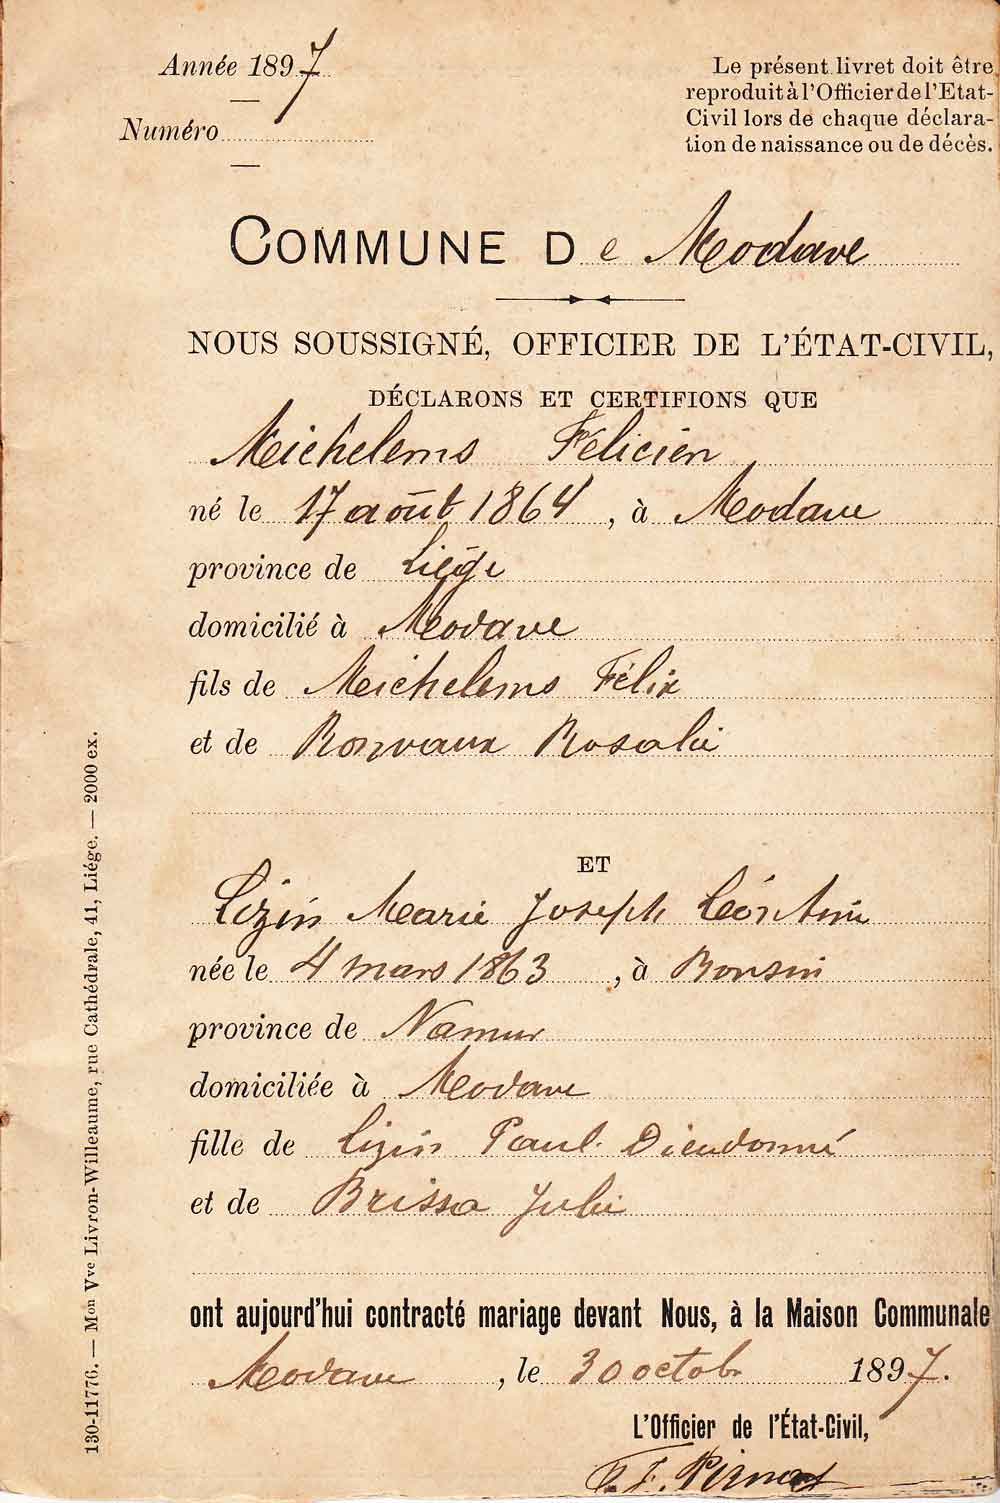 Année 1897
Numéro
Le présent livret doit être
reproduit à l'Officier de l'Etat-
Civil lors de chaque déclara-
tion de naissance ou de décès.
COMMUNE De Modave
NOUS SOUSSIGNÉ, OFFICIER DE L'ÉTAT-CIVIL,
DÉCLARONS ET CERTIFIONS QUE
Michelems Félicien
né le 17 août 1864, à Modave
province de Liége
domicilié à Modave
fils de Michelems Félix
et de Ronvaux Rosalie
ET
Lizin Marie Joseph Léontine
née le 4 mars 1863, à Bonsin
province de Namur
domiciliée à Modave
fille de Lizin Paul Dieudonné
et de Brissa Julie
ont aujourd'hui contracté mariage devant Nous, à la Maison Communale
Modave, le 30 octobr 1897.
L'Officier de l'État-Civil,
130-11776. — Mon Vve Livron-Willeaume, rue Cathédrale, 41, Liége. — 2000 ex.